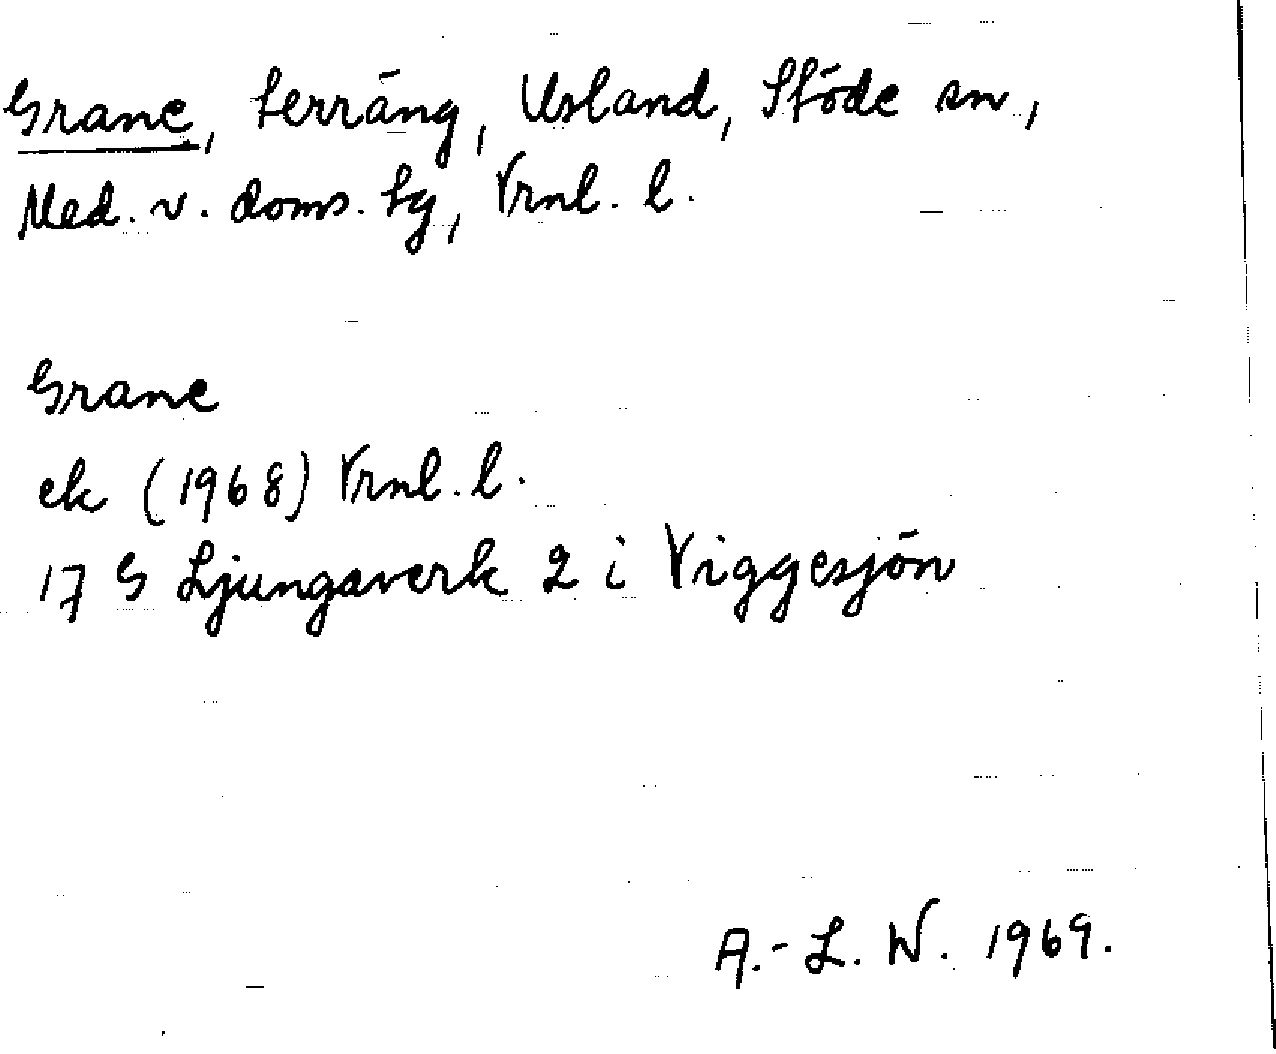 Grane, terräng, Usland, Stöde sn,
Med. v. doms. tg, Vrnl. l.
Grane
ek (1968) Vrnl. l.
17 G Ljungaverk 2 i Viggesjön
A.-L. W. 1969.